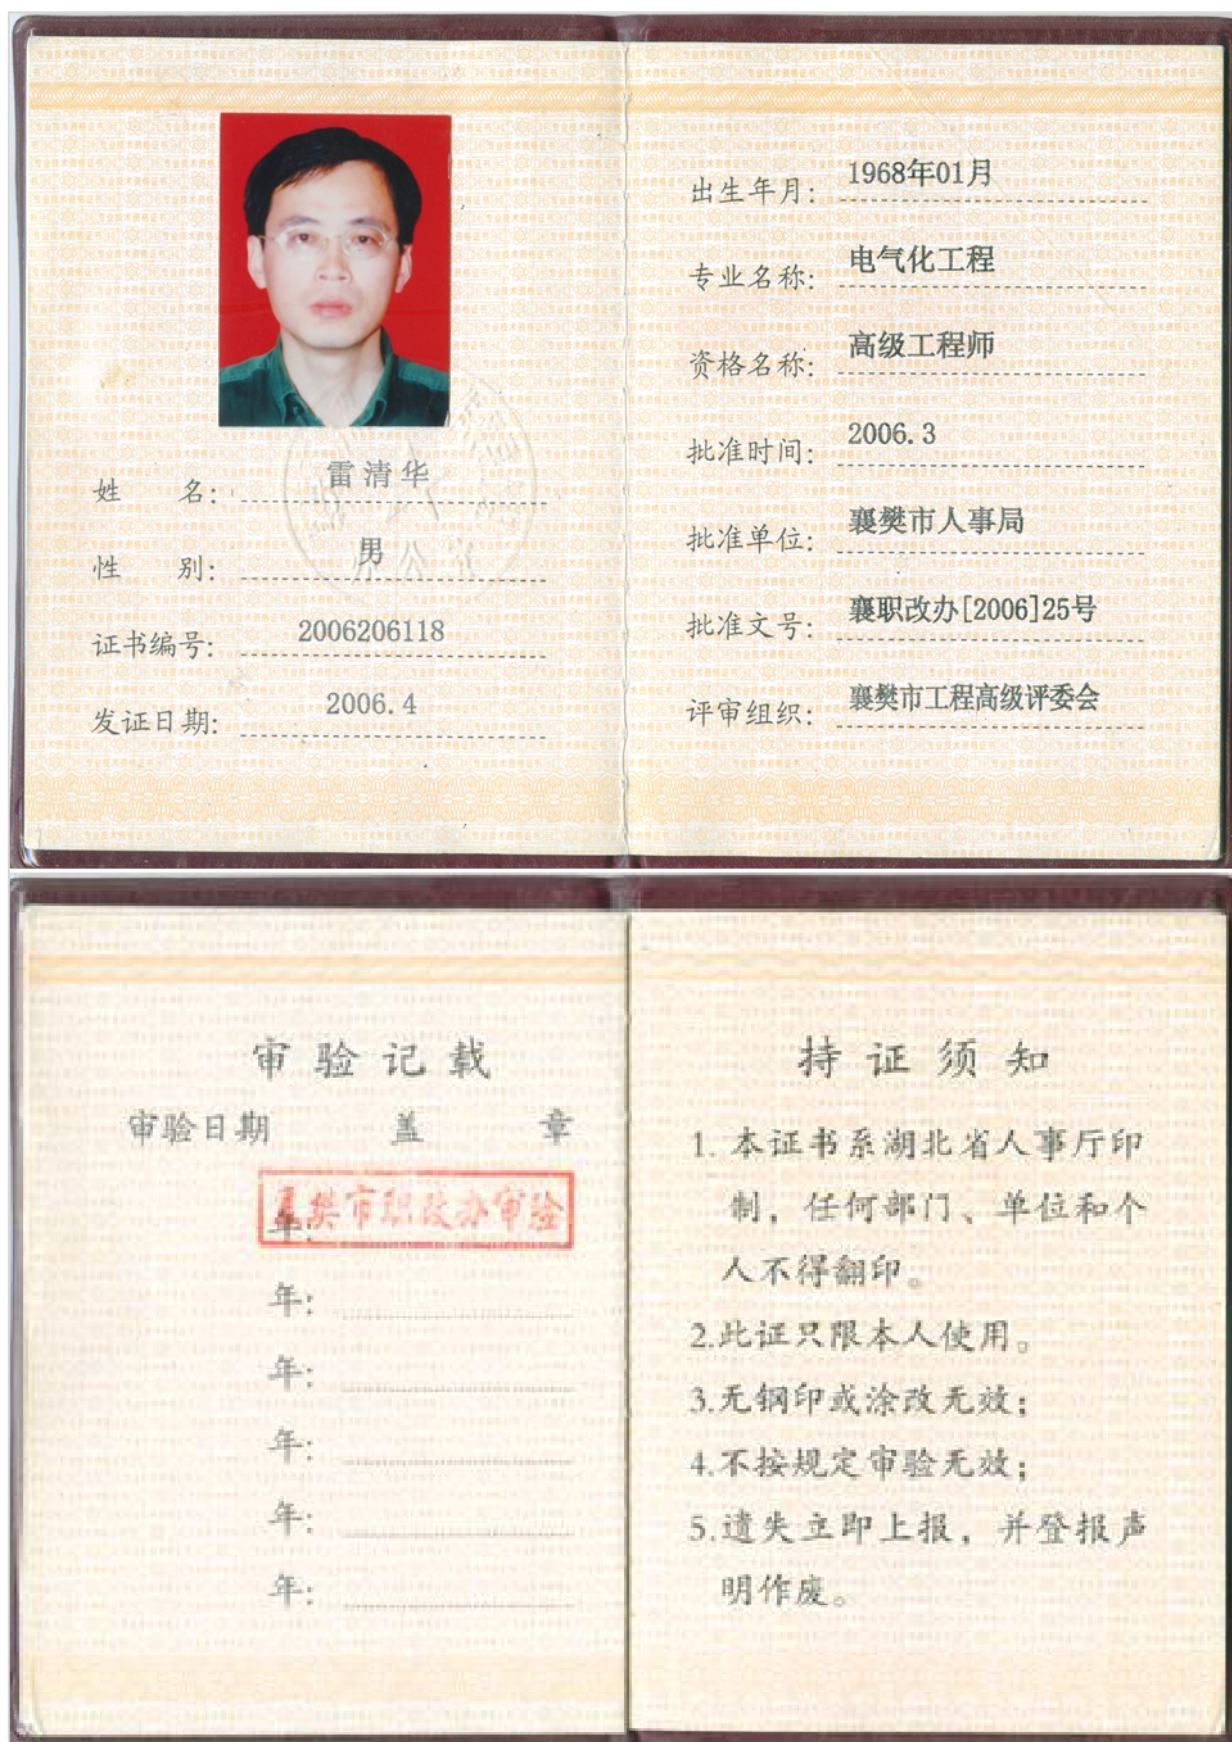 姓 名: 雷清华
性 别: 男
证书编号: 2006206118
发证日期: 2006.4
出生年月: 1968年01月
专业名称: 电气化工程
资格名称: 高级工程师
批准时间: 2006.3
批准单位: 襄樊市人事局
批准文号: 襄职改办[2006]25号
评审组织: 襄樊市工程高级评委会
审验记载
审验日期 盖 章
年: 襄樊市职改办审验
年:
年:
年:
年:
年:
持证须知
1. 本证书系湖北省人事厅印
制，任何部门、单位和个
人不得翻印。
2.此证只限本人使用。
3.无钢印或涂改无效；
4.不按规定审验无效；
5.遗失立即上报，并登报声
明作废。